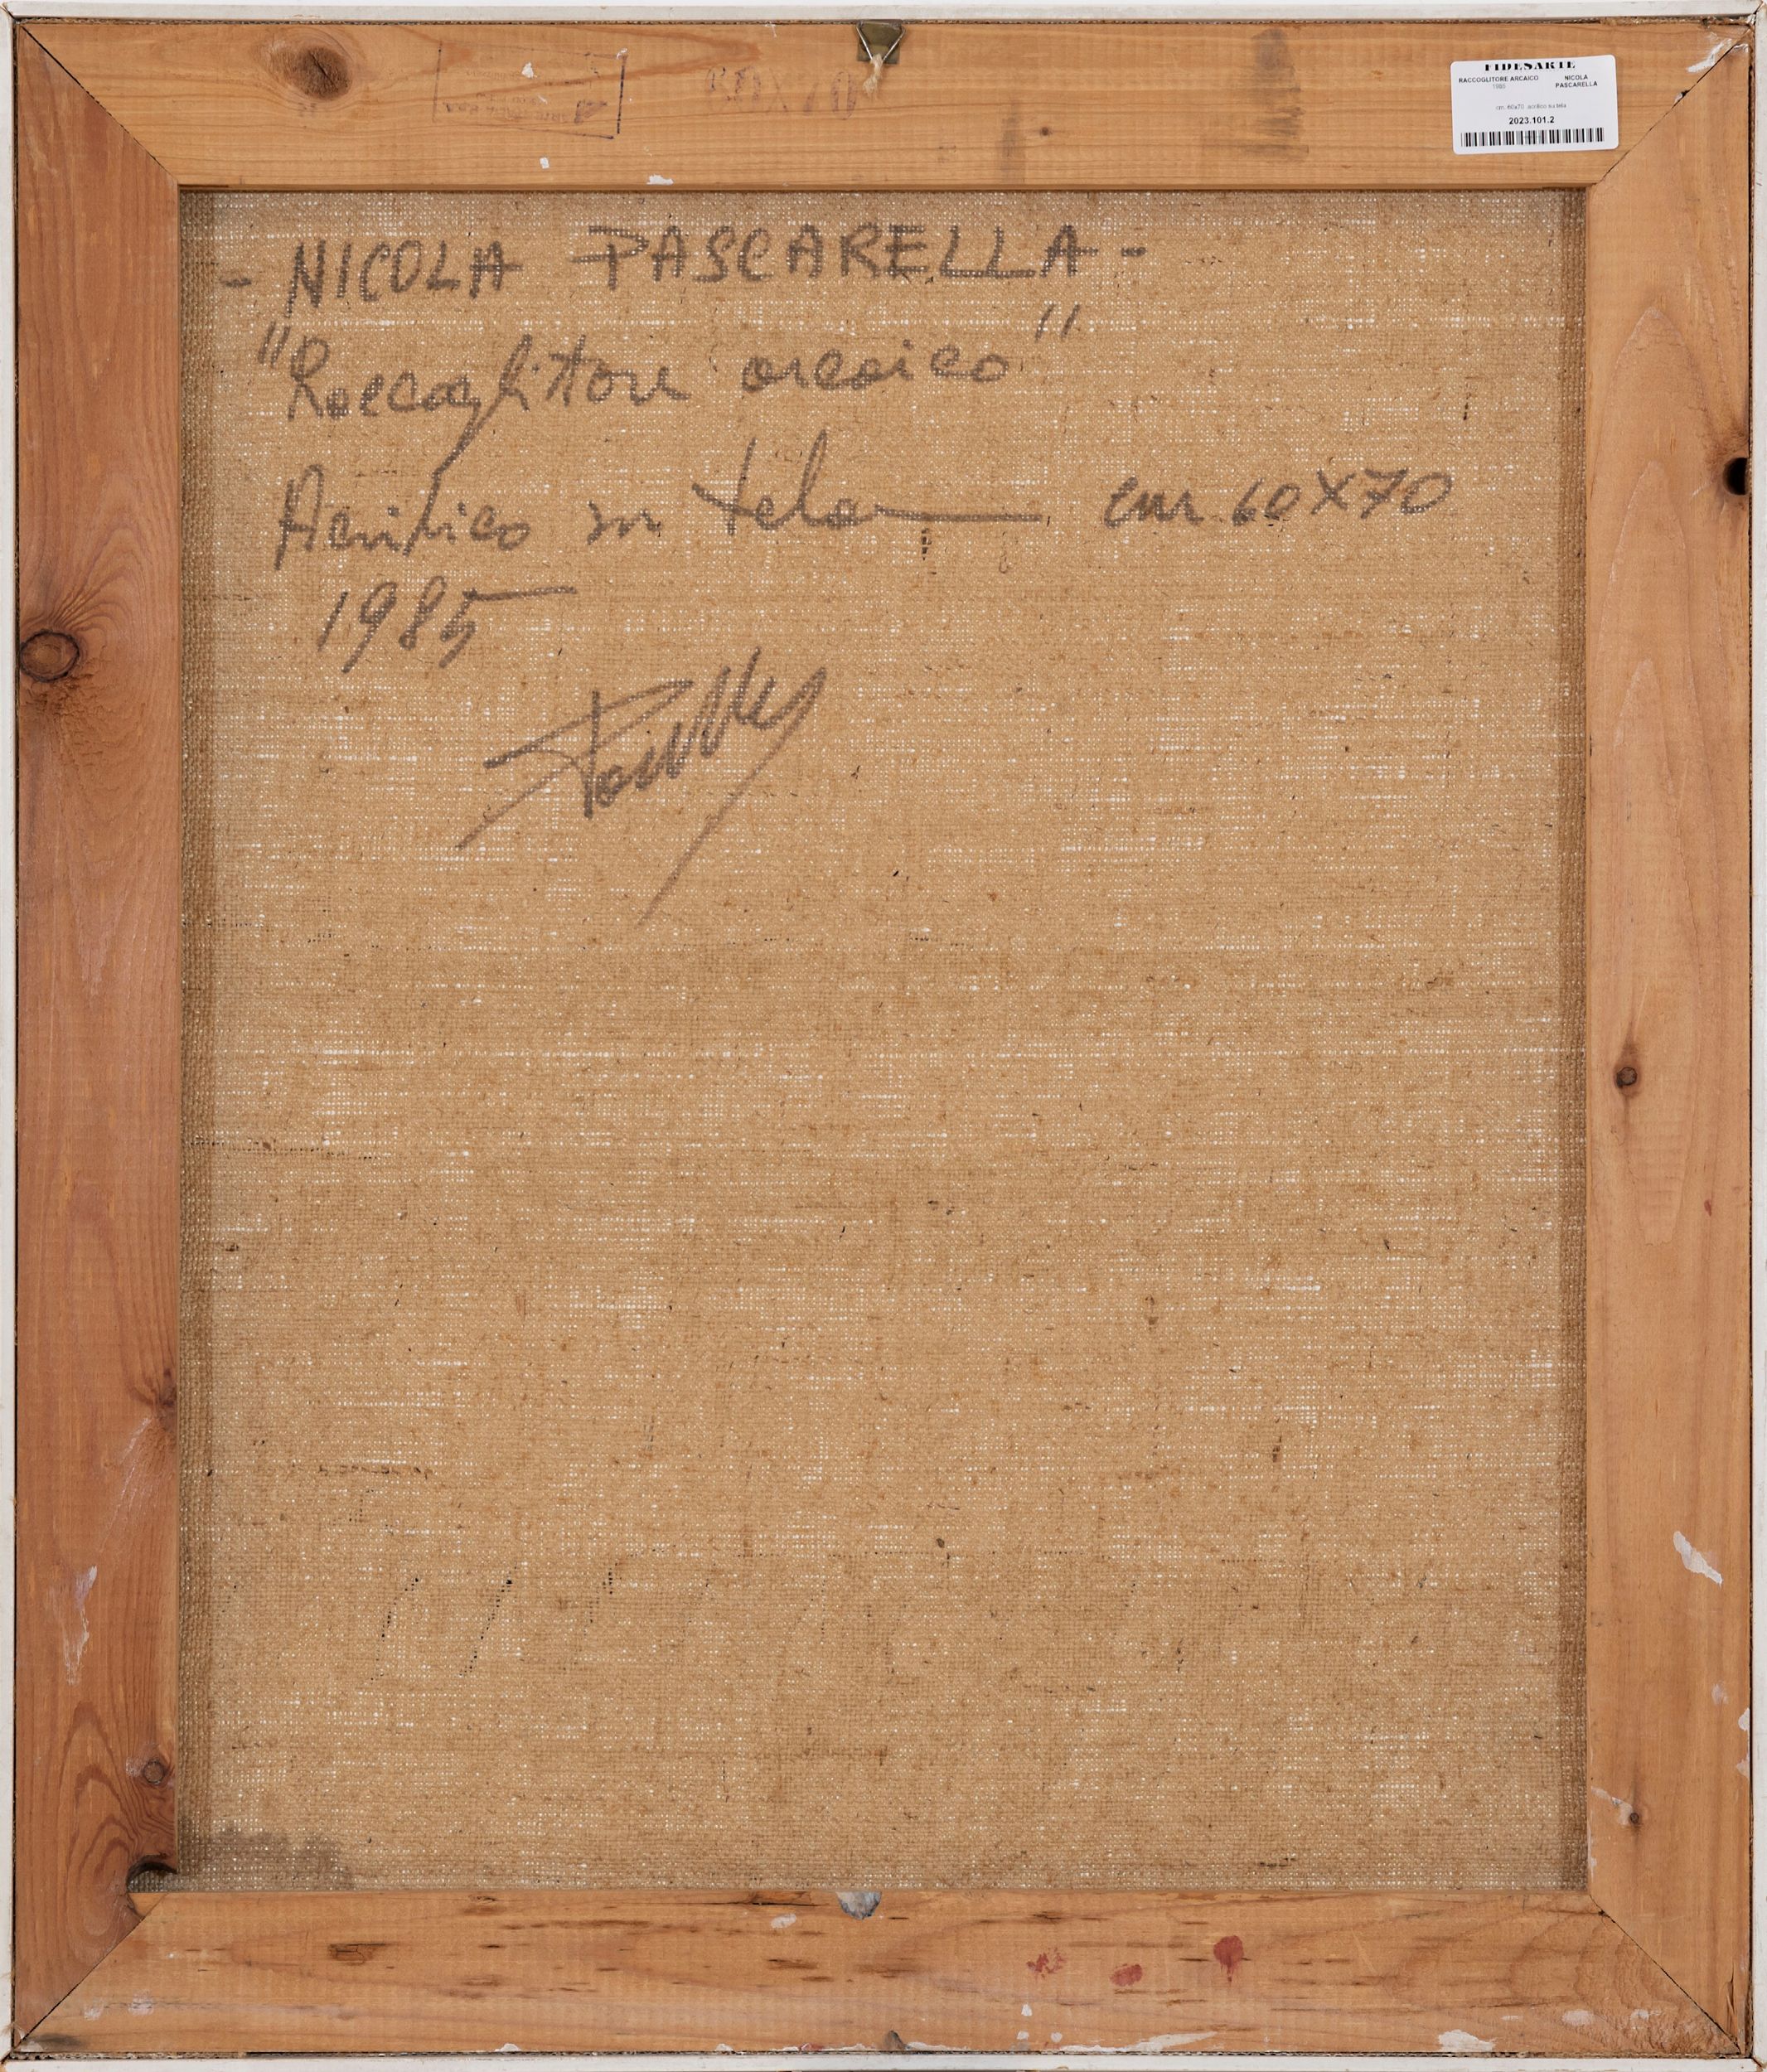 FIDESARTE
RACCOGLITORE ARCAICO NICOLA
1985 PASCARELLA
cm. 60x70 acrilico su tela
2023.101.2
- NICOLA PASCARELLA -
"Raccoglitore arcaico"
Acrilico su tela cm 60X70
1985